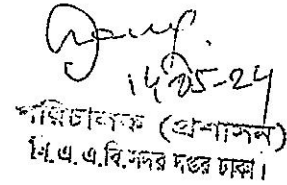 14-05-24
পরিচালক (প্রশাসন)
সি.এ.এ.বি.সদর দপ্তর ঢাকা।